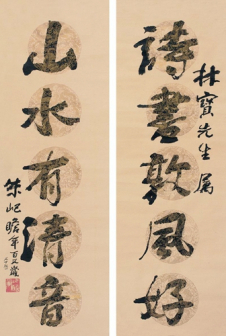 林寶先生属
詩書敦風好
山水有清音
朱屺瞻年百又